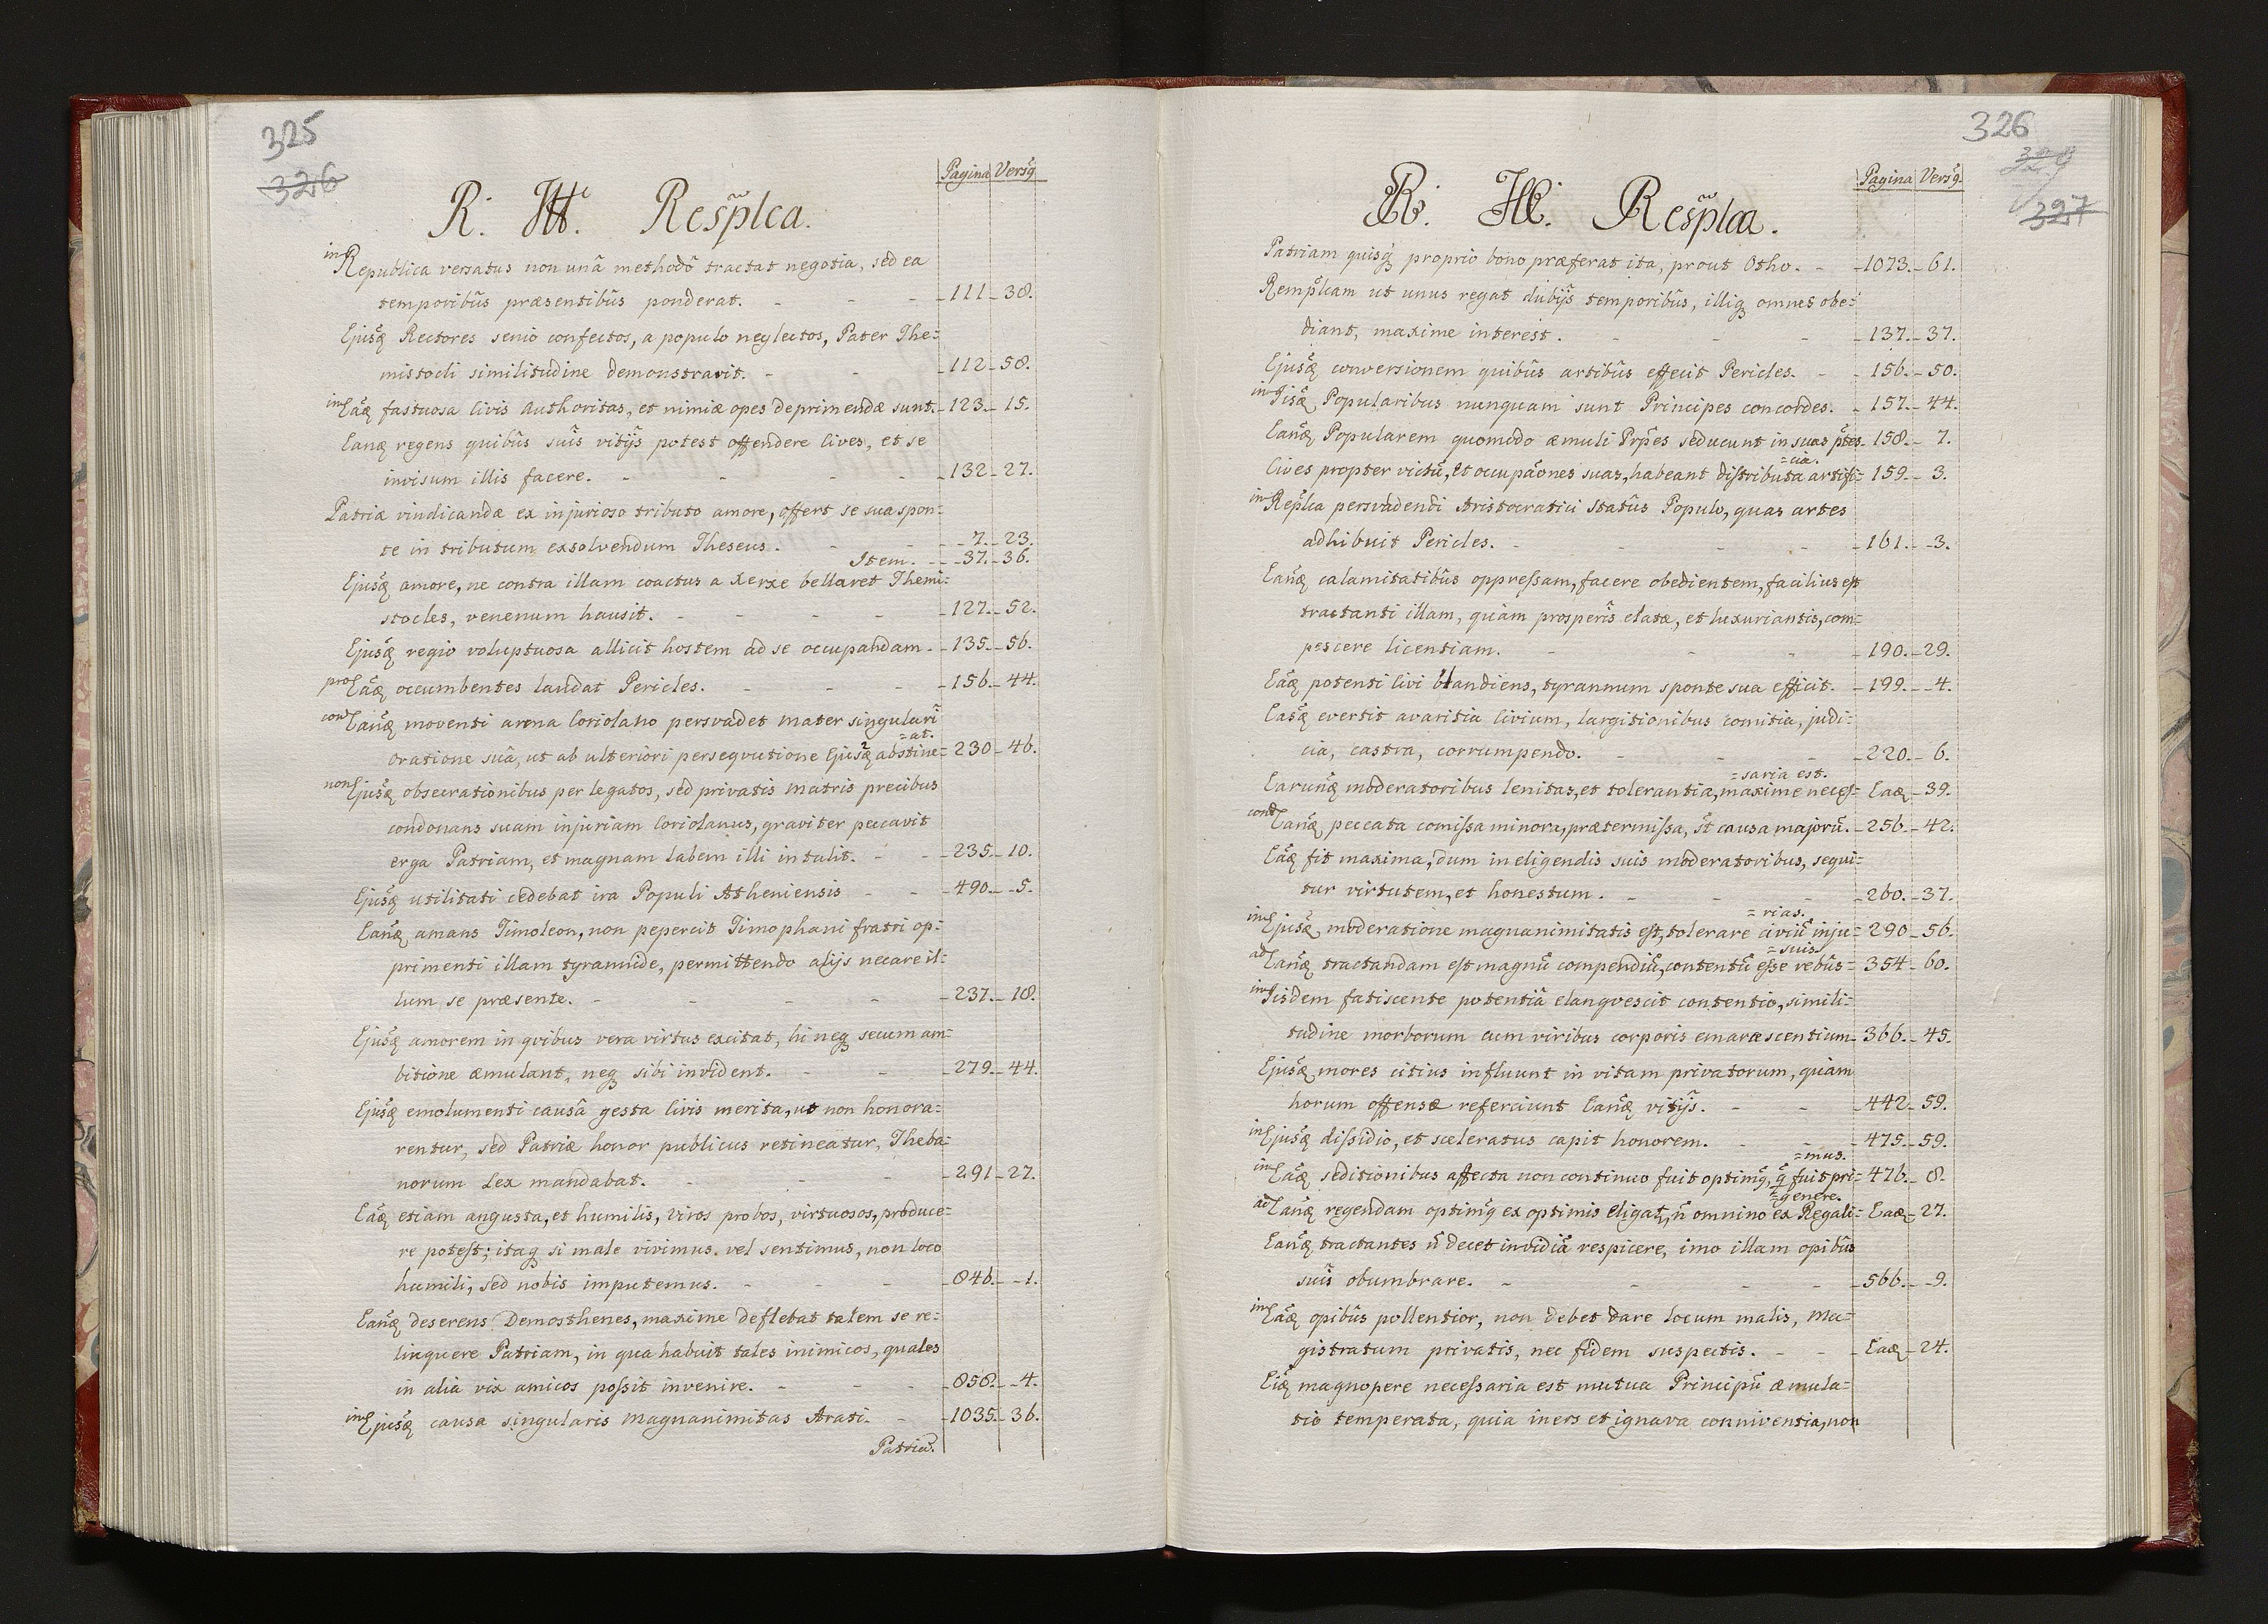 325
326
Pagina Versq̃
R. H. Resp̃lca.
in Republica versatus non unâ methodô tractat negotia, sed ea
temporibûs præsentibûs ponderat. - - - 111.- 38.
Ejusq̃ Rectores senio confectos, a populo neglectos, Pater The=
mistocli similitudine demonstravit. - - 112.- 58.
in Eaq̃ fastuosa Civis Authoritas, et nimiæ opes deprimendæ sunt. - 123.- 15.
Eanq̃ regens quibûs suîs vitijs potest offendere Cives, et se
invisum illis facere. - - - - 132.- 27.
Patriæ vindicandæ ex injurioso tributo amore, offert se sua spon=
te in tributum exsolvendum Theseus. - - - 7.- 23.
Item. - - 37.- 36.
Ejusq̃ amore, ne contra illam coactus a Xerxe bellaret Themi=
stocles, venenum hausit. - - - - 127.- 52.
Ejusq̃ regio voluptuosa allicit hostem ad se occupandam. - 135.- 56.
pro Eaq̃ occumbentes laudat Pericles. - - - 156.- 44.
con Eanq̃ moventi arma Coriolano persvadet mater singulari
=at.
oratione suâ, ut ab ulteriori perseqvutione Ejusq̃ abstine= 230.- 46.
non Ejusq̃ obsecrationibus per legatos, sed privatis matris precibus
condonans suam injuriam Coriolanus, graviter peccavit
erga Patriam, et magnam labem illi intulit. - - 235.- 10.
Ejusq̃ utilitati cedebat ira Populi Atheniensis - - 490.- 5.
Eanq̃ amans Timoleon, non pepercit Timophani fratri op=
primenti illam tyrannide, permittendo alijs necare il=
lum se præsente. - - - - 237.- 18.
Ejusq̃ amorem in qvibus vera virtus excitat, hi neq̃ secum am=
bitione æmulant, neq̃ sibi invident. - - 279.- 44.
Ejusq̃ emolumenti causâ gesta Civis merita, ut non honora=
rentur, sed Patriæ honor publicus retineatur, Theba=
norum Lex mandabat. - - - 291.- 27.
Eaq̃ etiam angusta, et humilis, viros probos, virtuosos, produce=
re potest; itaq̃ si male vivimus. vel sentimus, non loco
humili, sed nobis imputemus. - - - 846.- 1.
Eanq̃ deserens Demosthenes, maxime deflebat talem se re=
linquere Patriam, in qua habuit tales inimicos, quales
in alia vix amicos possit invenire. - - - 858.- 4.
in Ejusq̃ causa singularis magnanimitas Arati. - - 1035.- 36.
Patriã.
326
327
Pagina Versq̃
R. H. Resp̃lca.
Patriam quisq̃ proprio bono præferat ita, prout Otho. - - 1073.- 61.
Remp̃lcam ut unus regat dubijs temporibûs, illiq̃ omnes obe=
diant, maxime interest. - - - 137.- 37.
Ejusq̃ conversionem quibûs artibûs effecit Pericles. - - 156.- 50.
in Iisq̃ Popularibus nunquam sunt Principes concordes. - 157.- 44.
Eanq̃ Popularem quomodo æmuli Prp̃es seducunt in suas p̃tes - 158.- 7.
=cia.
Cives propter victũ, et occupãones suas, habeant distributa artifi= 159.- 3.
in Rep̃lca persvadendi Aristocratici Statûs Populo, quas artes
adhibuit Pericles. - - - - 161.- 3.
Eanq̃ calamitatibûs oppressam, facere obedientem, facilius est
tractanti illam, quàm prosperîs elatæ, et luxuriantis, com=
pescere licentiam. - - - 190.- 29.
Eaq̃ potenti Civi blandiens, tyrannum sponte sua efficit. - 199.- 4.
Easq̃ evertit avaritia Civium, largitionibus comitia, judi=
cia, castra, corrumpendo. - - - 220.- 6.
=saria est.
Earunq̃ moderatoribus lenitas, et tolerantia, maxime neces= Eaq̃ - 39.
cont Eanq̃ peccata comissa minora, prætermissa, st̃ causa majorũ. - 256.- 42.
Eaq̃ fit maxima, dum in eligendis suis moderatoribus, sequi=
tur virtutem, et honestum. - - - 260.- 37.
=rias.
in Ejusq̃ moderatione magnanimitatis est, tolerare civiũ inju= 290.- 56.
=suis.
ad Eanq̃ tractandam est magnũ compendiũ, contentũ esse rebûs= 354.- 60.
in Iisdem fatiscente potentiâ elangvescit contentio, simili=
tudine morborum cum viribus corporis emarcescentium - 366.- 45.
Ejusq̃ mores citius influunt in vitam privatorum, quàm
horum offensæ referciunt Eanq̃ vitijs. - - 442.- 59.
in Ejusq̃ dissidio, et sceleratus capit honorem. - - 475.- 59.
=mus.
in Eaq̃ seditionibus affecta non continuo fuit optimq̃, q̃ fuit pri= 476.- 8.
=genere.
ad Eanq̃ regendam optimq̃ ex optimis eligat, ñ omnino ex Regali= Eaq̃ - 27.
Eanq̃ tractantes ñ decet invidiã respicere, imo illam opibûs
suîs obumbrare. - - - - 566.- 9.
in Eaq̃ opibûs pollentior, non debet dare locum malis, Ma=
gistratum privatis, nec fidem suspectis. - - Eaq̃ - 24.
Eiq̃ magnopere necessaria est mutua Principũ æmula=
tio temperata, quia iners et ignava conniventia, non